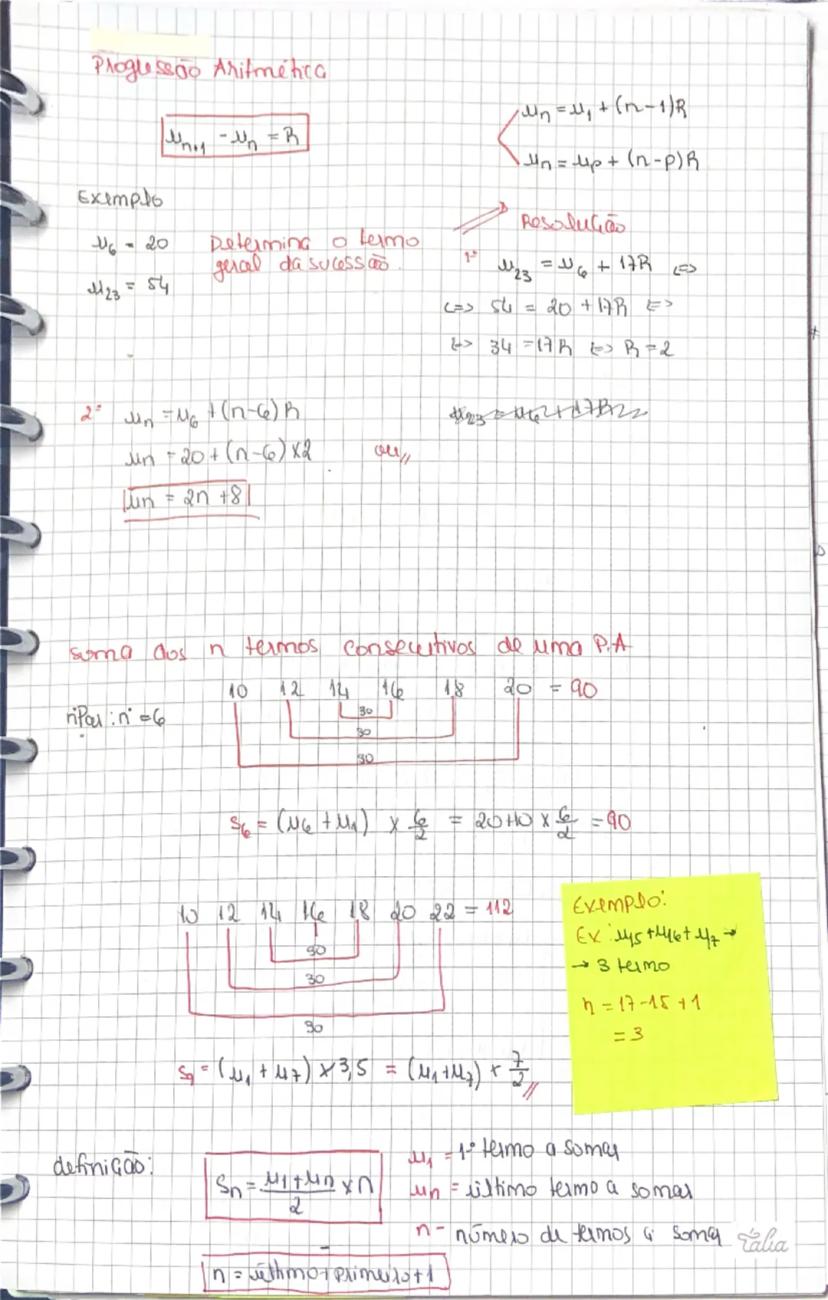 Progressão Aritmética
u_{n+1} - u_n = R
u_n = u_1 + (n-1)R
u_n = u_p + (n-p)R
Exemplo
u_6 = 20
u_23 = 54
Determina o termo
geral da sucessão.
Resolução
1º u_23 = u_6 + 17R <=>
<=> 54 = 20 + 17R <=>
<=> 34 = 17R <=> R = 2
2º u_n = u_6 + (n-6)R
u_n = 20 + (n-6) × 2 ou,,
u_n = 2n + 8
soma dos n termos consecutivos de uma P.A
10 12 14 16 18 20 = 90
nº Par: n = 6
30
30
30
S_6 = (u_6 + u_1) × 6/2 = 20+10 × 6/2 = 90
10 12 14 16 18 20 22 = 112
30
30
30
= (u_1 + u_7) × 3,5 = (u_1+u_7) × 7/2 //
Exemplo:
Ex: u_15 + u_16 + u_17 →
→ 3 termo
n = 17-15+1
= 3
definição:
S_n = (u_1 + u_n)/2 × n
u_1 = 1º termo a somar
u_n = último termo a somar
n - número de termos a soma
n = último - primeiro + 1
Tália